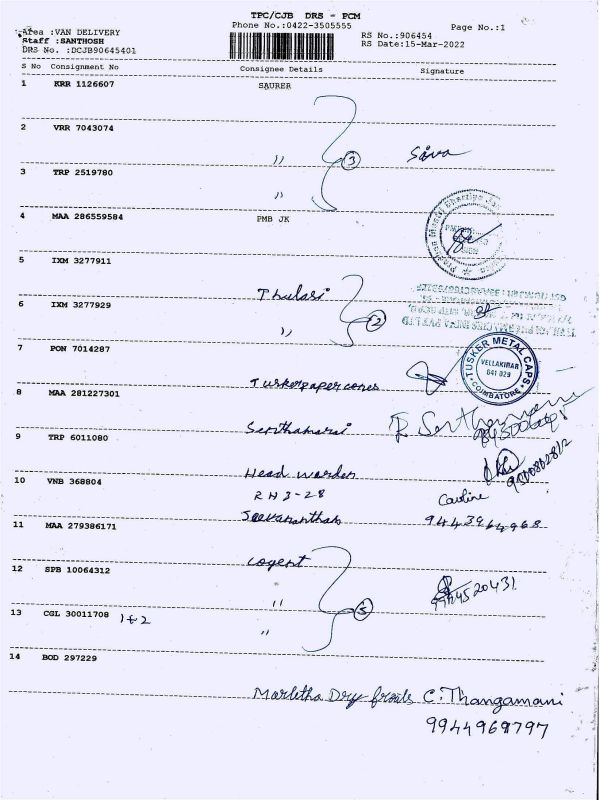 TPC/CJB DRS - PCM
Area :VAN DELIVERY Phone No.:0422-3505555 Page No.:1
Staff :SANTHOSH RS No.:906454
DRS No. :DCJB90645401 RS Date:15-Mar-2022
S No Consignment No Consignee Details Signature
1 KRR 1126607 SAURER
2 VRR 7043074
" 3 Siva
3 TRP 2519780
"
4 MAA 286559584 PMB JK
5 IXM 3277911
Thulasi
6 IXM 3277929
" 2
7 PON 7014287
TUSKER METAL CAPS
VELLAKINAR
641 029
COIMBATORE
Tuskerpapercones
8 MAA 281227301
9 TRP 6011080
Head warden 9500802812
10 VNB 368804
RH3-28
11 MAA 279386171 9443964968
Cogent
12 SPB 10064312
" 5
13 CGL 30011708 1+2
"
14 BOD 297229
Dry fruits C. Thangamani
9944969797